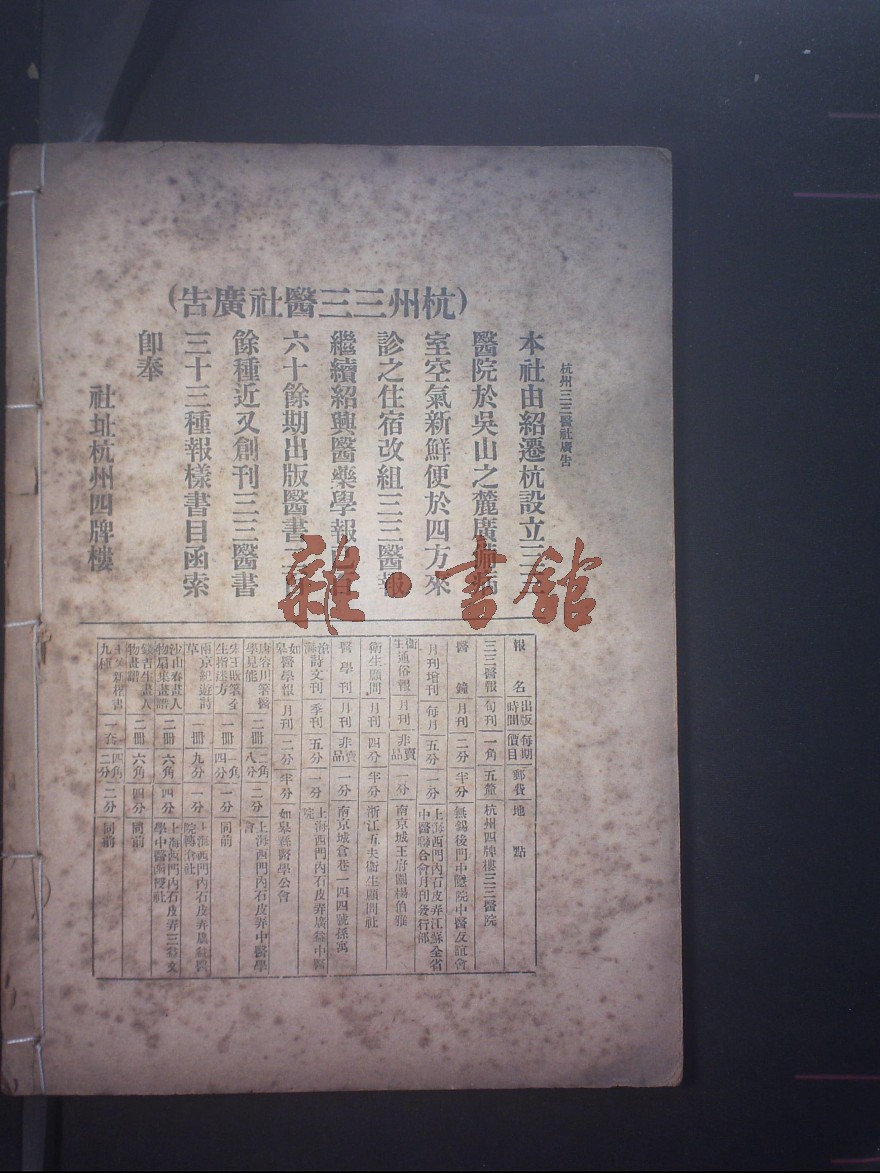 杭州三三醫社廣告
(杭州三三醫社廣告)
本社由紹遷杭設立三三
醫院於吳山之麓廣備病
室空氣新鮮便於四方來
診之住宿改組三三醫報
繼續紹興醫藥學報已百
六十餘期出版醫書
餘種近又創刊三三醫書
三十三種報樣書目函索
即奉
社址杭州四牌樓
雜·書館
報名 出版時間 每期價目 郵費 地點
三三醫報 旬刊 一角 五釐 杭州四牌樓三三醫院
醫鐘 月刊 二分 半分 無錫後門中隱院中醫友誼會
月刊增刊 每月 五分 一分 上海西門內石皮弄江蘇全省中醫聯合會月刊發行部
衛生通俗報 月刊 非賣品 一分 南京城王府園楊伯雅
衛生顧問 月刊 四分 半分 浙江五夫衛生顧問社
醫學刊 月刊 非品 一分 南京城倉巷一四四號孫寓
詩文刊 季刊 五分 一分 上海西門內石皮弄廣益中醫院
如皋醫學報 月刊 二分 半分 如皋縣醫學公會
唐容川筆醫學見能 二冊 二角八分 二分 上海西門內石皮弄中醫學會
生指迷方 一冊 一角四分 一分 同前
兩京紀遊詩草 一冊 九分 一分 上海西門內石皮弄
沙山春畫人物扇集畫譜 二冊 六角 四分 上海西門內石皮弄三益文學中醫函授社
錢吉生畫人物畫譜 二冊 六角 四分 同前
新楷書九種 一套 四角二分 二分 同前